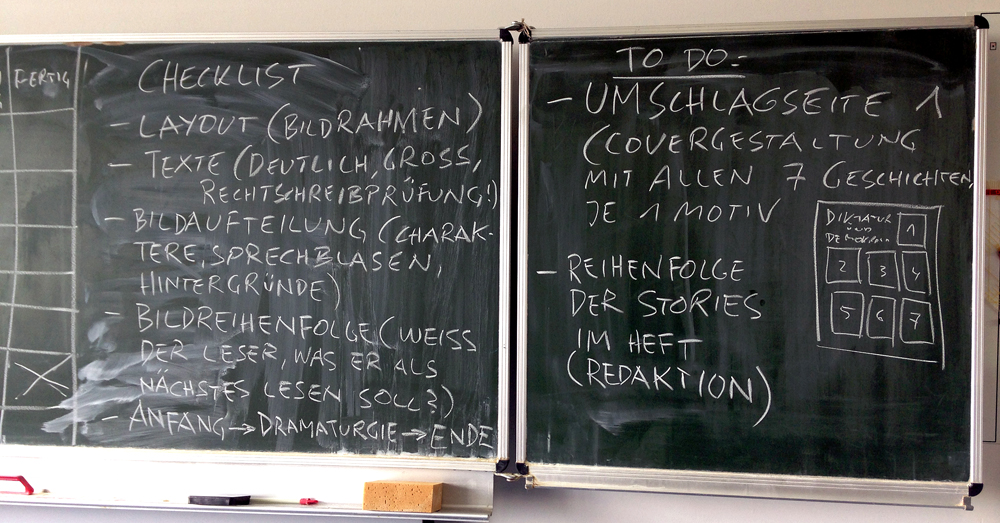 FERTIG
CHECKLIST
- LAYOUT (BILDRAHMEN)
- TEXTE (DEUTLICH, GROSS,
RECHTSCHREIBPRÜFUNG!)
- BILDAUFTEILUNG (CHARAK-
TERE, SPRECHBLASEN,
HINTERGRÜNDE)
- BILDREIHENFOLGE (WEISS
DER LESER, WAS ER ALS
NÄCHSTES LESEN SOLL?)
- ANFANG → DRAMATURGIE → ENDE
TO DO:
- UMSCHLAGSEITE 1
(COVERGESTALTUNG
MIT ALLEN 7 GESCHICHTEN,
JE 1 MOTIV
- REIHENFOLGE
DER STORIES
IM HEFT
(REDAKTION)
DIKTATUR
UND
1
2 3 4
5 6 7